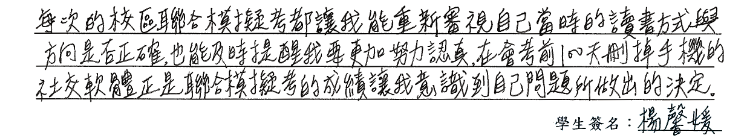 每次的校區聯合模擬考都讓我能重新審視自己當時的讀書方式與
方向是否正確,也能及時提醒我要更加努力認真,在會考前100天刪掉手機的
社交軟體正是聯合模擬考的成績讓我意識到自己問題所做出的決定。
學生簽名:楊馨媛